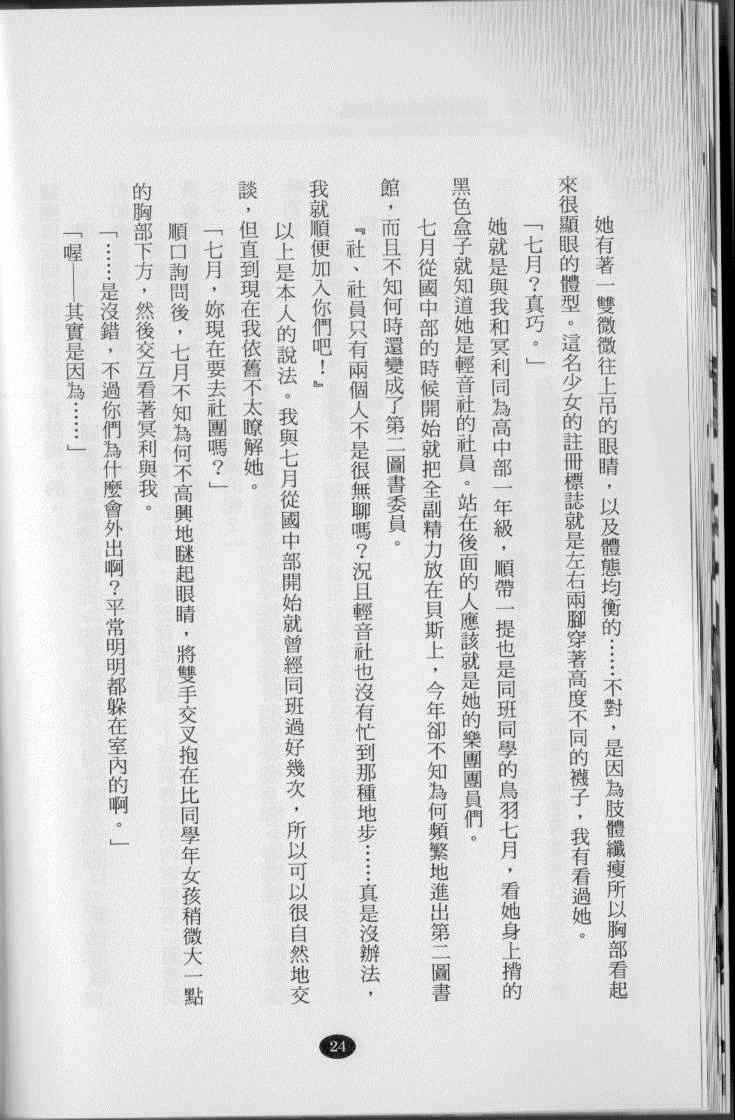 她有著一雙微微往上吊的眼睛，以及體態均衡的……不對，是因為肢體纖瘦所以胸部看起
來很顯眼的體型。這名少女的註冊標誌就是左右兩腳穿著高度不同的襪子，我有看過她。
「七月？真巧。」
她就是與我和冥利同為高中部一年級，順帶一提也是同班同學的鳥羽七月，看她身上揹的
黑色盒子就知道她是輕音社的社員。站在後面的人應該就是她的樂團團員們。
七月從國中部的時候開始就把全副精力放在貝斯上，今年卻不知為何頻繁地進出第二圖書
館，而且不知何時還變成了第二圖書委員。
『社、社員只有兩個人不是很無聊嗎？況且輕音社也沒有忙到那種地步……真是沒辦法，
我就順便加入你們吧！』
以上是本人的說法。我與七月從國中部開始就曾經同班過好幾次，所以可以很自然地交
談，但直到現在我依舊不太瞭解她。
「七月，妳現在要去社團嗎？」
順口詢問後，七月不知為何不高興地瞇起眼睛，將雙手交叉抱在比同學年女孩稍微大一點
的胸部下方，然後交互看著冥利與我。
「……是沒錯，不過你們為什麼會外出啊？平常明明都躲在室內的啊。」
「喔——其實是因為……」
24